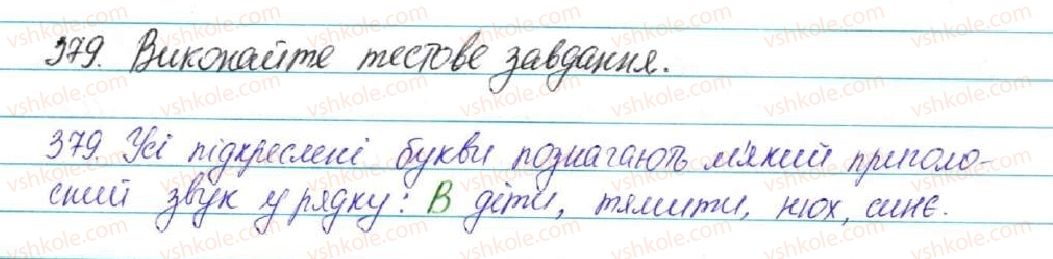 379. Виконайте тестове завдання.
379. Усі підкреслені букви позначають м'який приголо-
сний звук у рядку: В діти, тямити, нюх, синє.